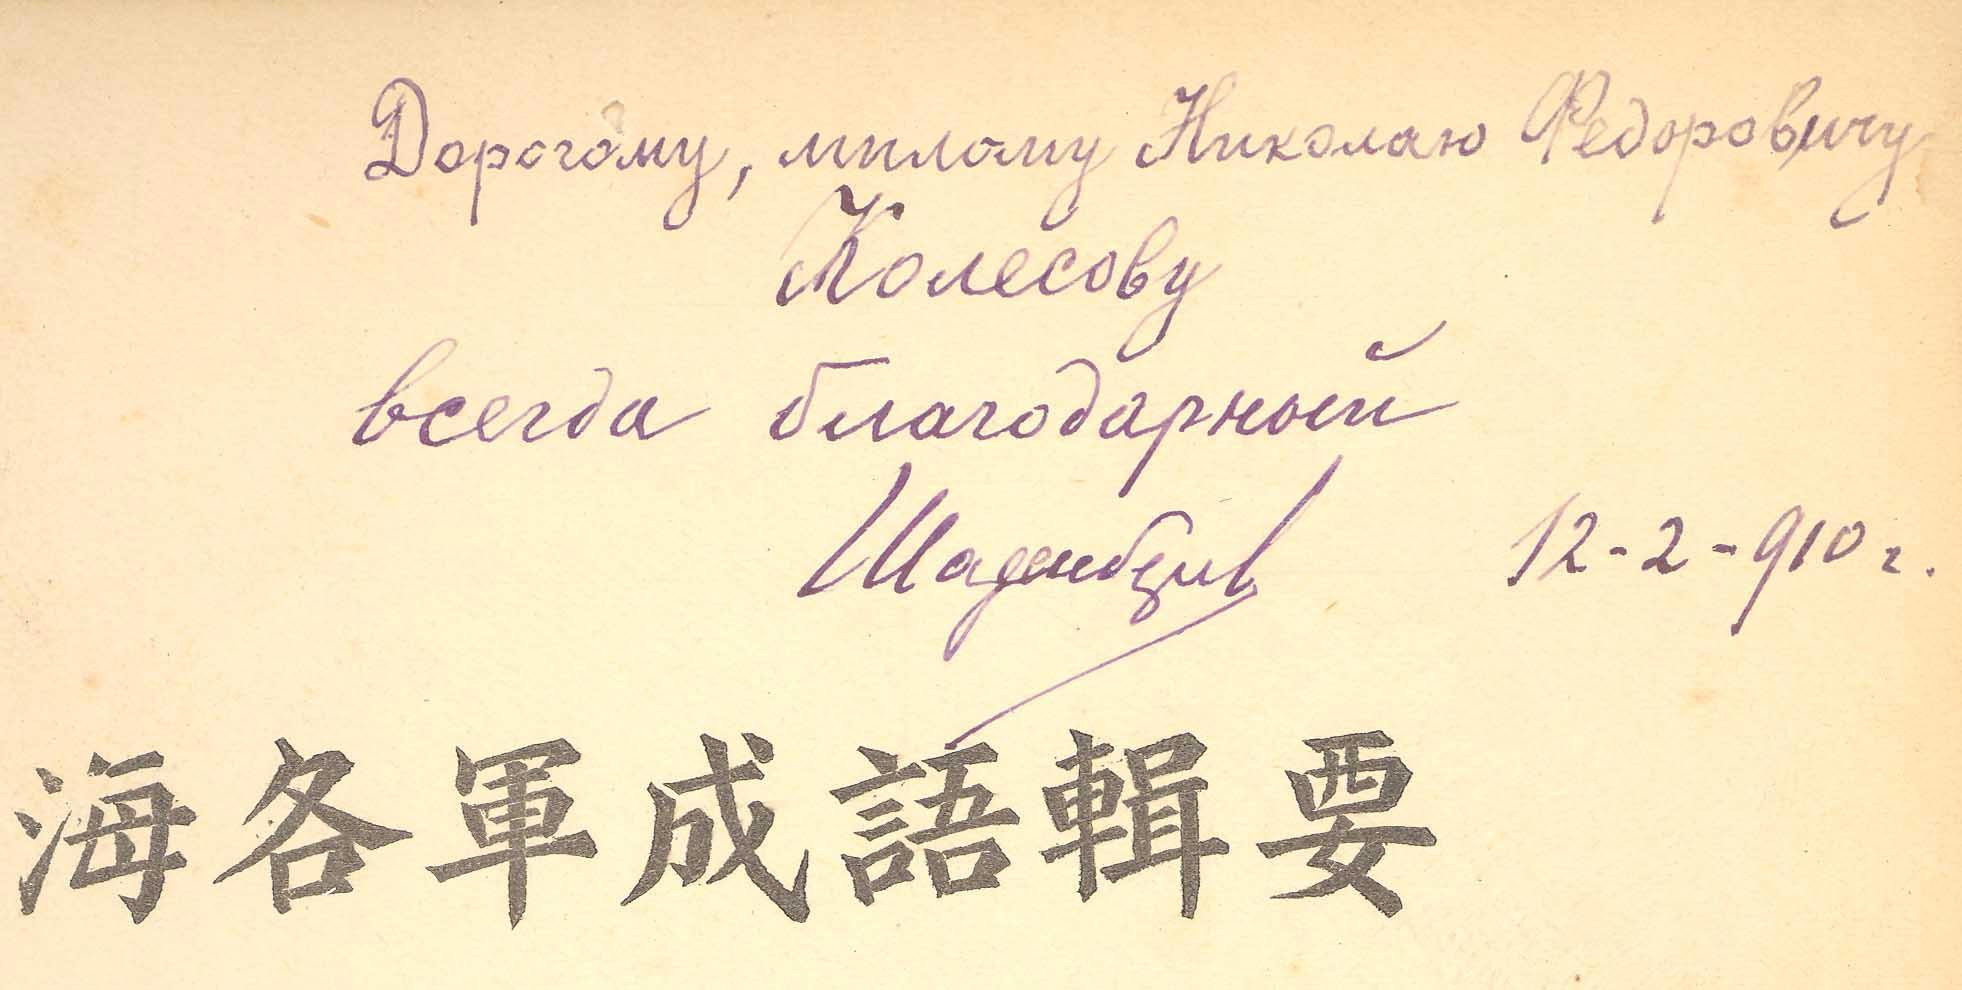 Дорогому, милому Николаю Федоровичу
Колесову
всегда благодарный
12-2-910 г.
海各軍成語輯要